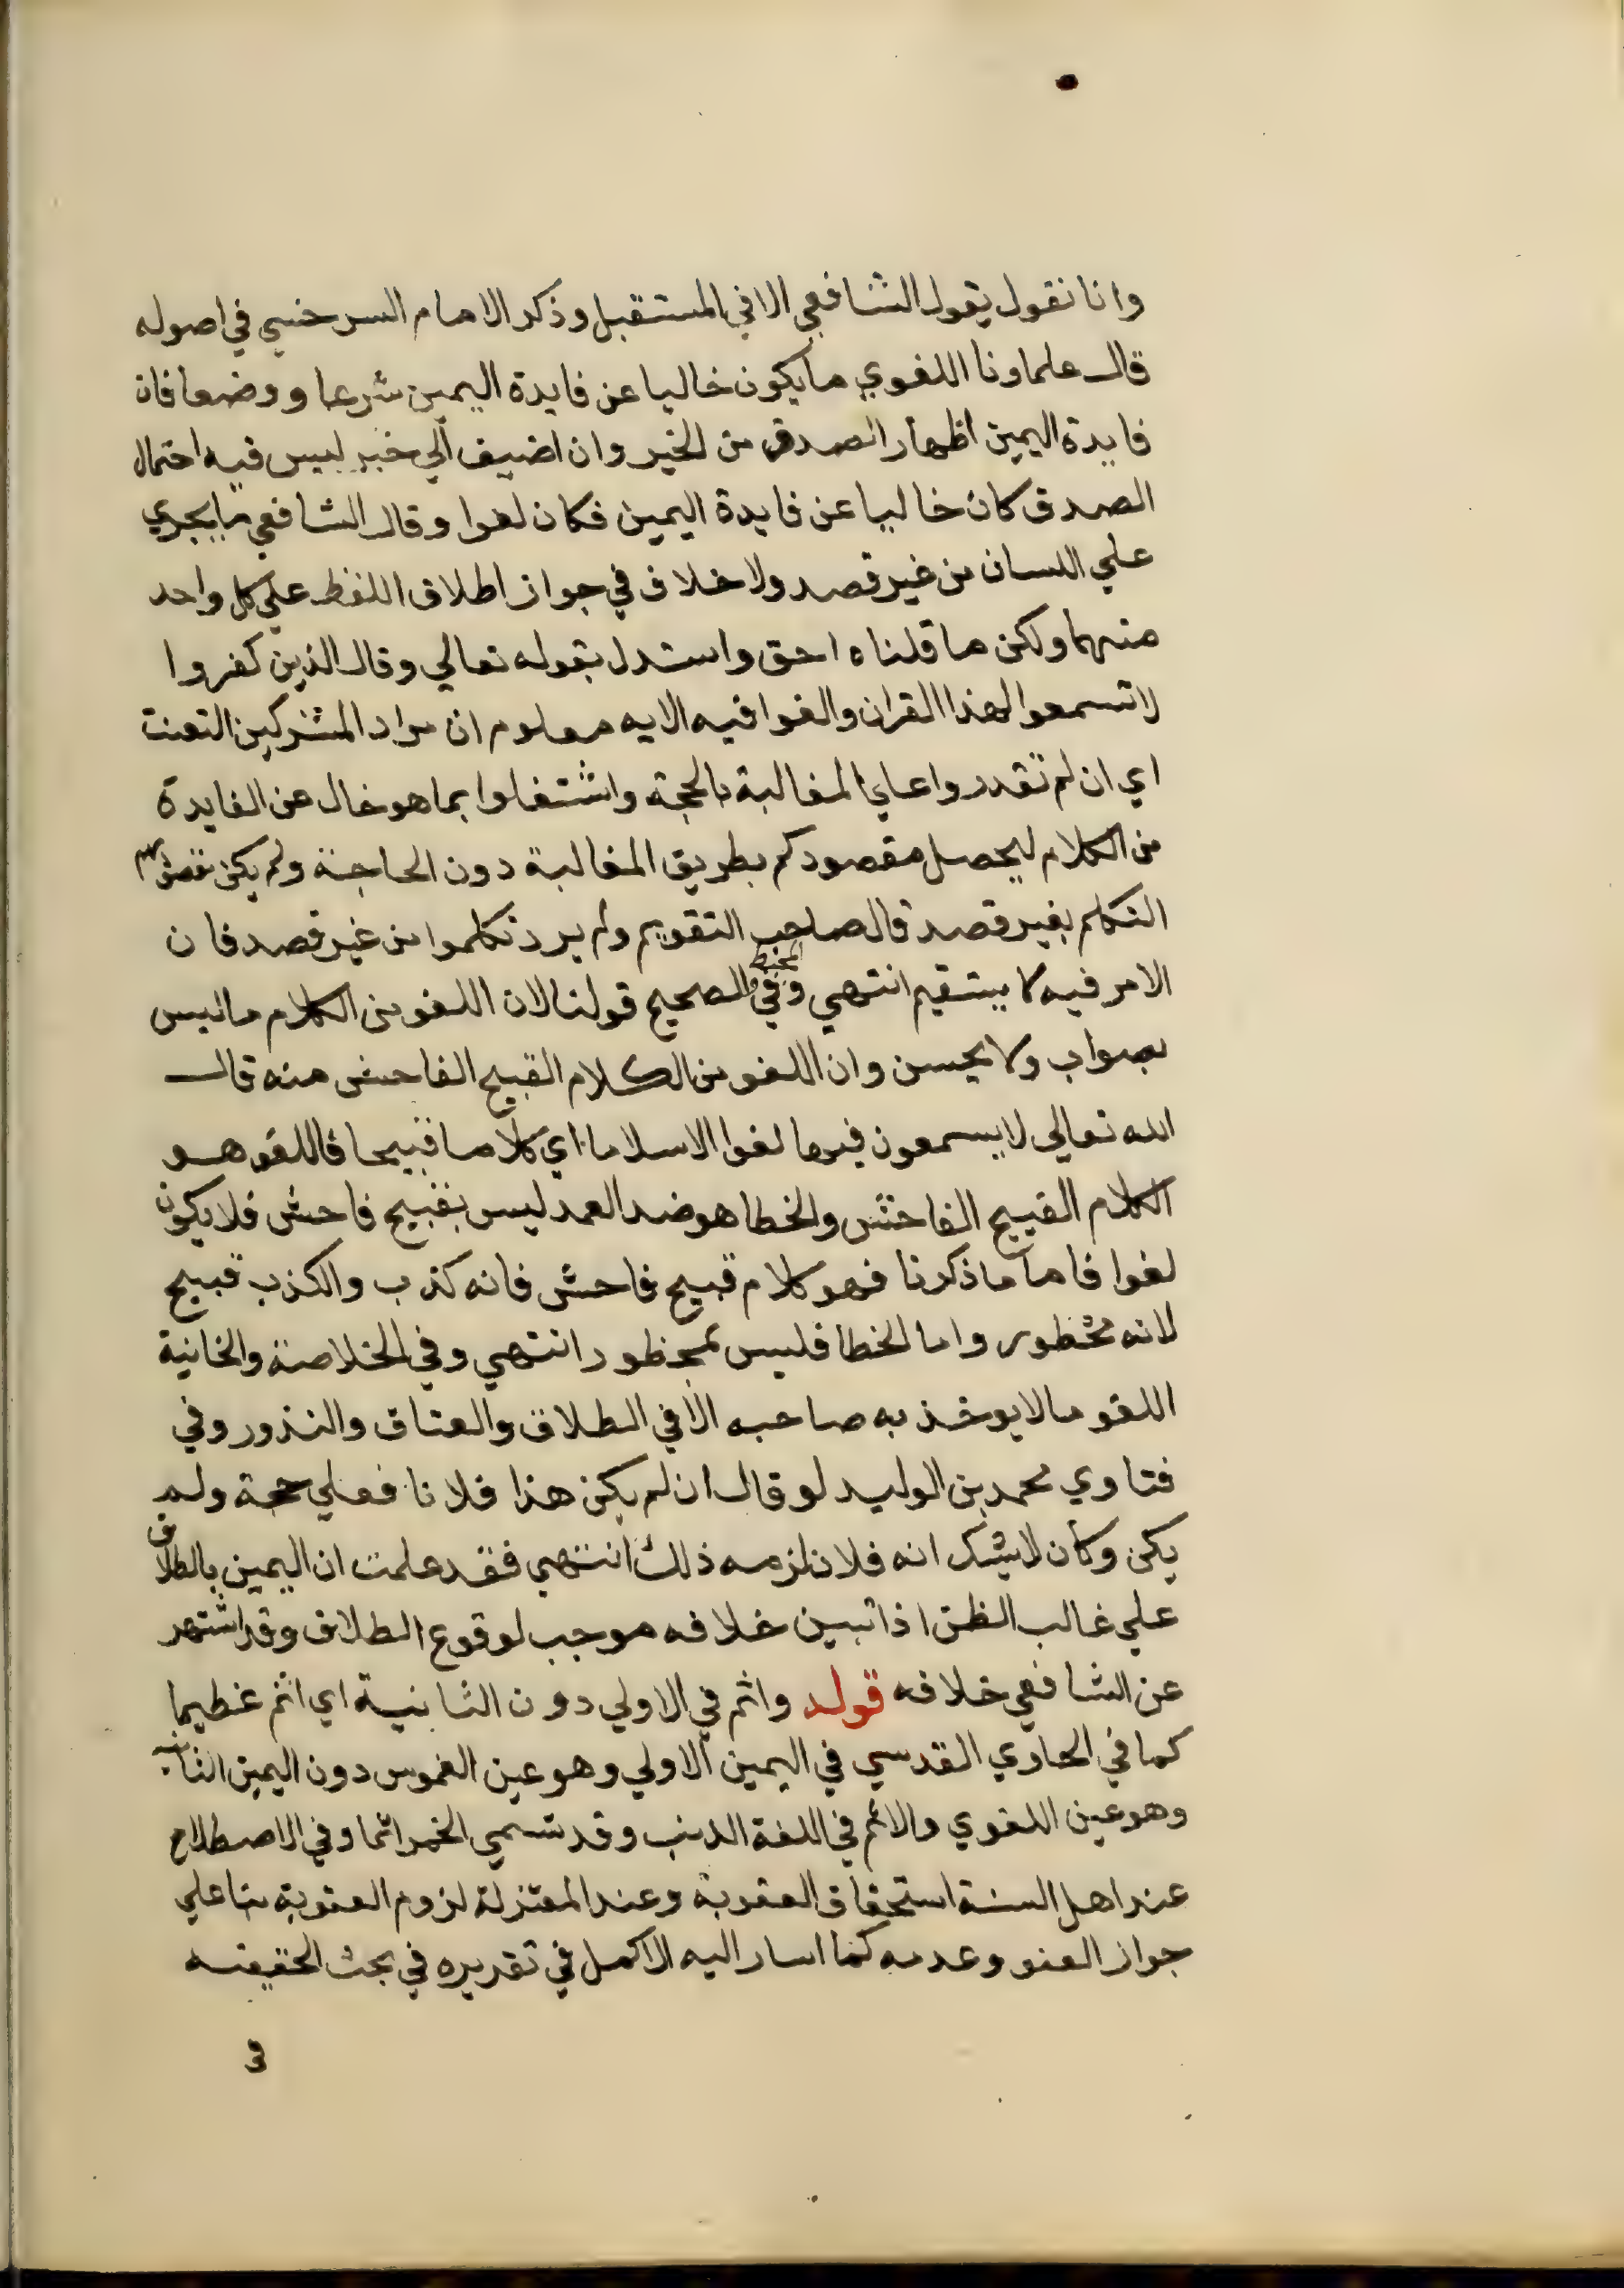 وانا نقول يقول الشافعي الا في المستقبل وذكر الامام السرخسي في اصوله
قال علماونا اللغوي ما يكون خاليا عن فايدة اليمين شرعا ووضعا فان
فايدة اليمين اظهار الصدق من الخبر وان اضيف الي خبر ليس فيه احتمال
الصدق كان خاليا عن فايدة اليمين فكان لغوا وقال الشافعي ما يجري
علي اللسان من غير قصد ولا خلاف في جواز اطلاق اللفظ علي كل واحد
منهما ولكن ما قلناه احق واستدل بقوله تعالي وقال الذين كفروا
لا تسمعوا لهذا القران والغوا فيه الايه معلوم ان مراد المشركين التعنت
اي ان لم تقدروا علي المغالبة بالحجة واشتغلوا بما هو خال عن الفايدة
من الكلام ليحصل مقصودكم بطريق المغالبة دون الحاجة ولم يكن
التكلم بغير قصد قال صاحب التقويم ولم يرد تكلموا من غير قصد فان
الامر فيه لا يستقيم انتهي وفي المحيط والصحيح قولنا لان اللغو من الكلام ما ليس
بصواب ولا يحسن وان اللغو من الكلام القبيح الفاحش منه قال
الله تعالي لا يسمعون فيها لغوا الا سلاما اي كلاما قبيحا فاللغو هو
الكلام القبيح الفاحش والخطا هو ضد العمد ليس بقبيح فاحش فلا يكون
لغوا فاما ما ذكرنا فهو كلام قبيح فاحش فانه كذب والكذب قبيح
لانه محظور واما الخطا فليس بمحظور انتهي وفي الخلاصة والخانية
اللغو ما لا يوخذ به صاحبه الا في الطلاق والعتاق والنذور وفي
فتاوي محمد بن الوليد لو قال ان لم يكن هذا فلانا فعلي حجة ولم
يكن وكان لا يشك انه فلان لزمه ذلك انتهي فقد علمت ان اليمين بالطلاق
علي غالب الظن اذا تبين خلافه موجب لوقوع الطلاق وقد اشتهر
عن الشافعي خلافه قوله واثم في الاولي دون الثانية اي اثم عظيما
كما في الحاوي القدسي في اليمين الاولي وهو عين الغموس دون اليمين الثانيه
وهو عين اللغوي والاثم في اللغة الذنب وقد تسمي الخمر اثما وفي الاصطلاح
عند اهل السنة استحقاق العقوبة وعند المعتزلة لزوم العقوبة بنا علي
جواز العفو وعدمه كما اسار اليه الاكمل في تقريره في بحث الحقيقه